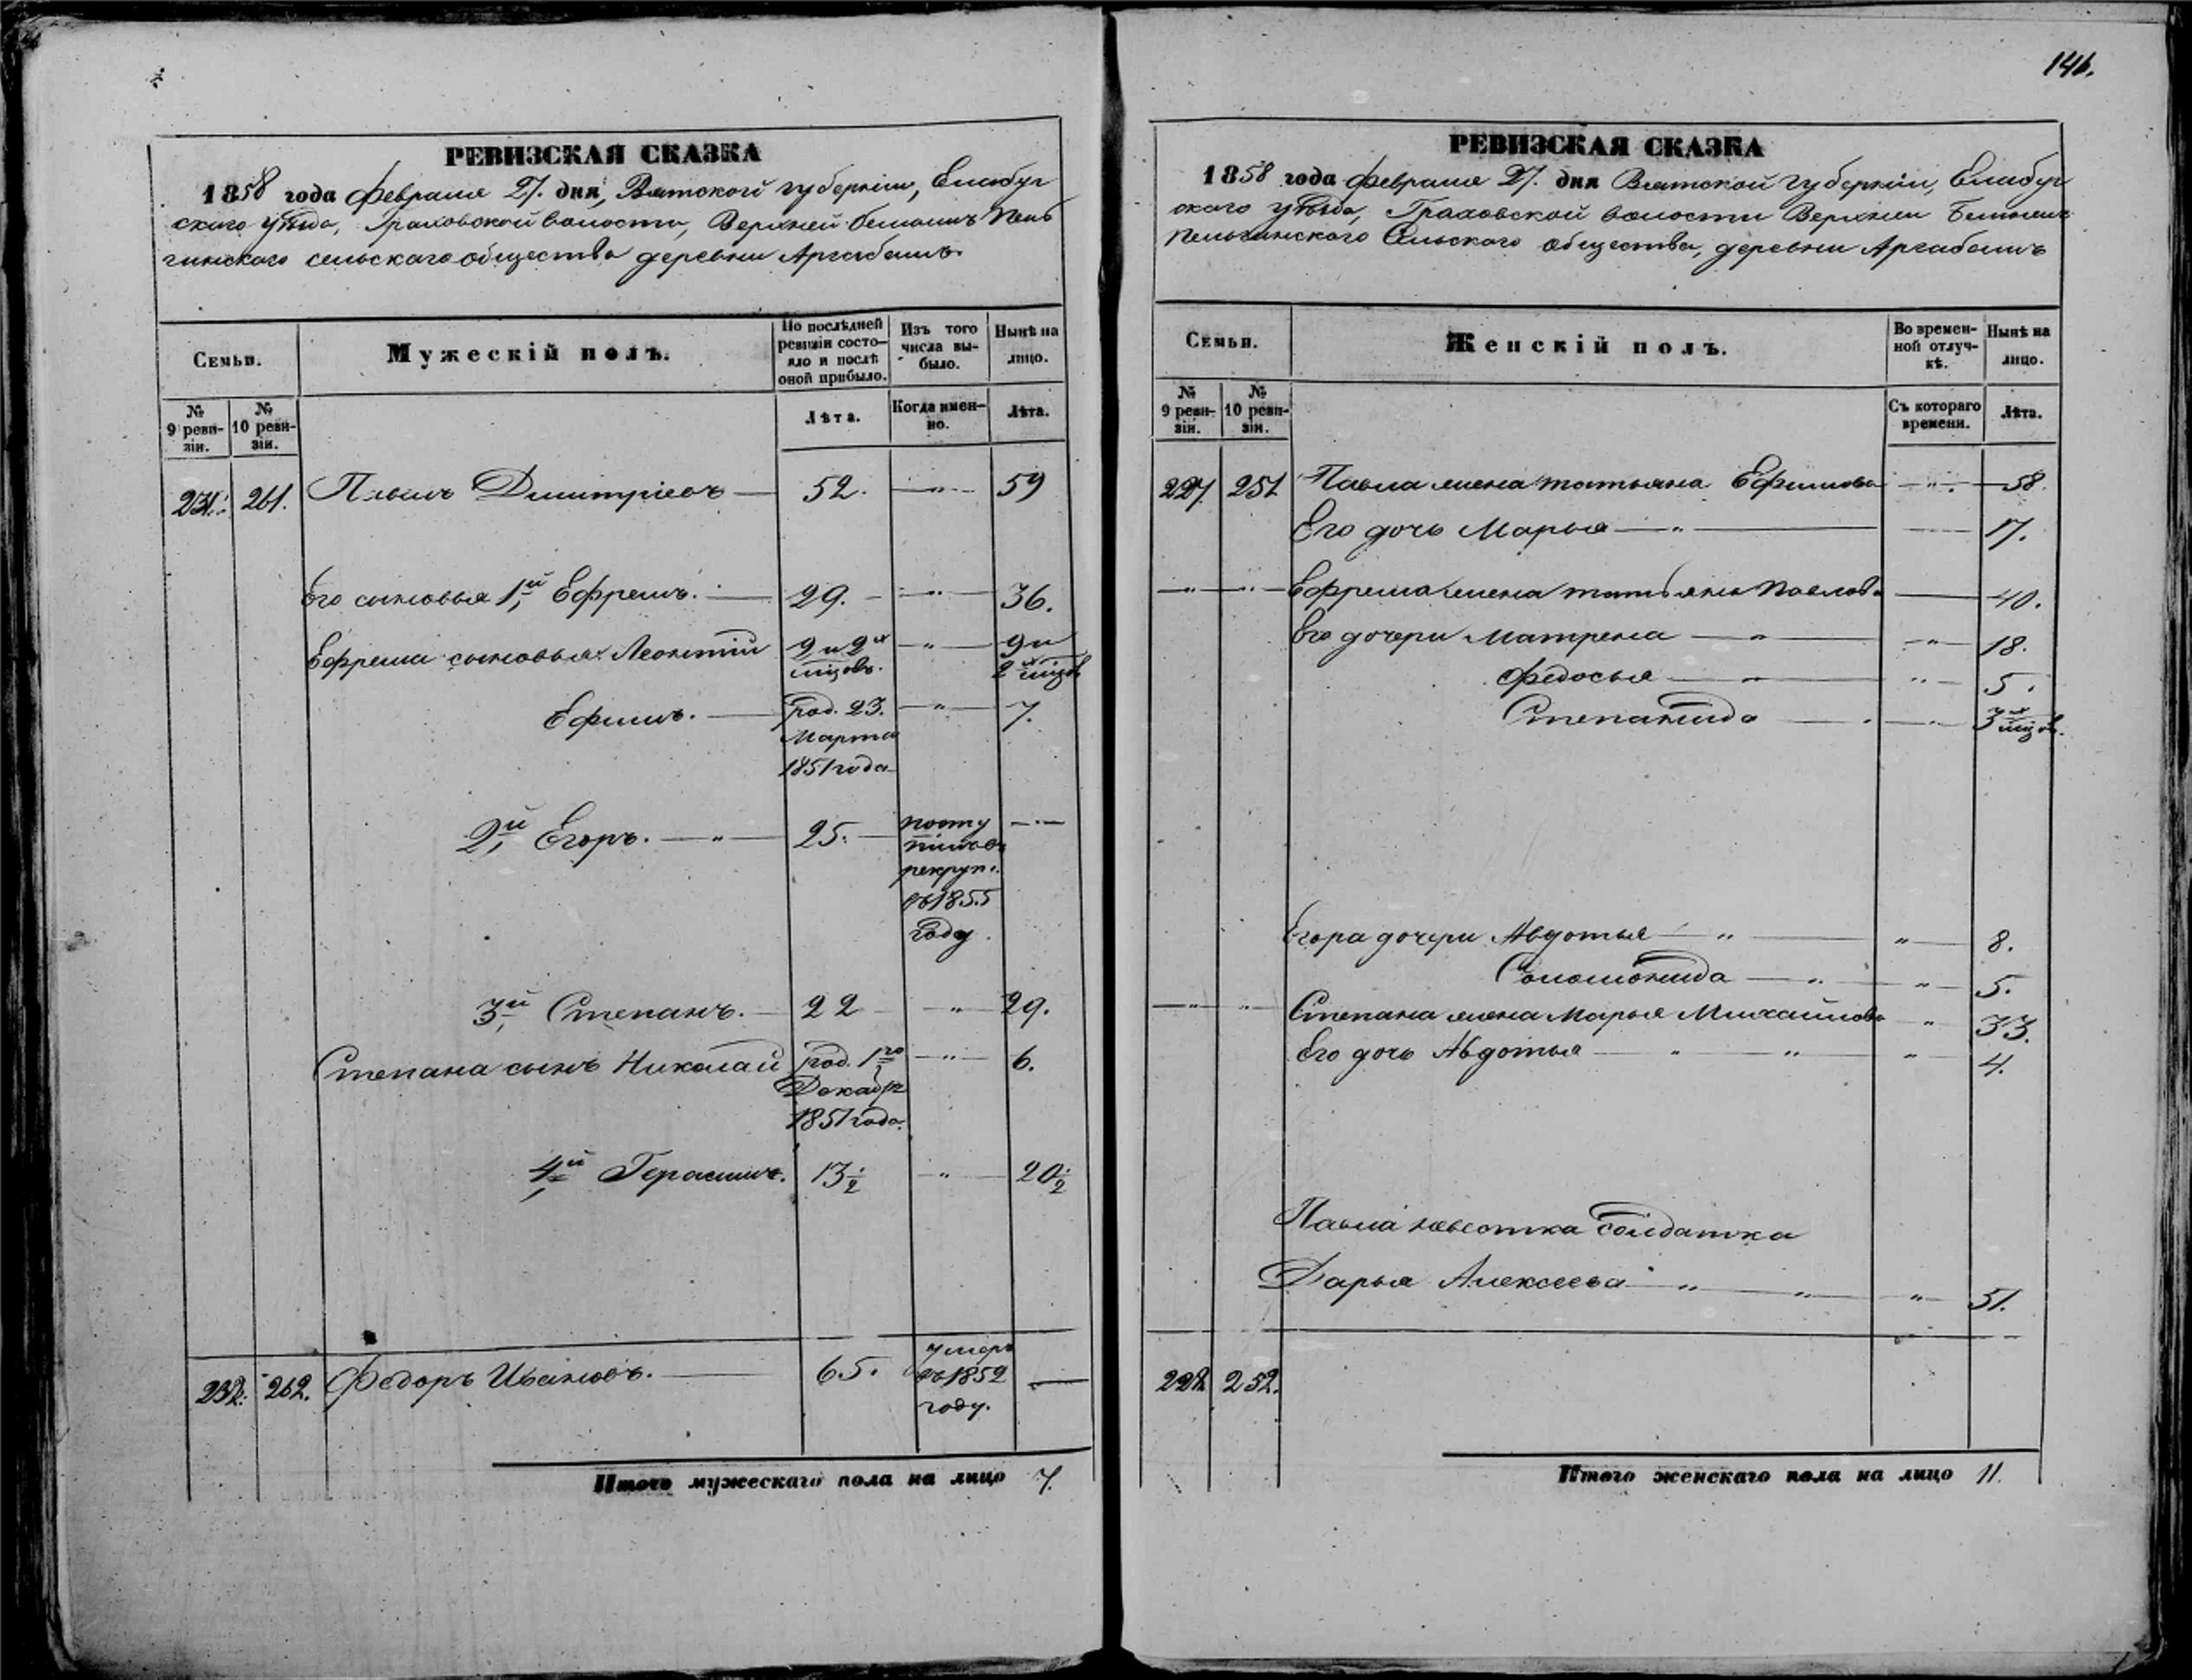 146.
РЕВИЗСКАЯ СКАЗКА
1858 года февраля 27. дня, Вятской губернии, Елабуг
скаго уѣзда, Граховской волости, Верхней
гинскаго сельскаго общества деревни Аргабашъ
Семьи.
Мужескій полъ.
По послѣдней ревизіи состояло и послѣ оной прибыло.
Изъ того числа выбыло.
Нынѣ на лицо.
№ 9 ревизіи.
№ 10 ревизіи.
Лѣта.
Когда именно.
Лѣта.
231. 261. Павелъ Дмитріевъ — 52. — " — 59
Его сыновья 1й Ефремъ. — 29. — " — 36.
Ефрема сыновья: Леонтій 2 и 2х мѣсяцовъ. — " — 9 и 2х
Ефимъ. — род. 23. — " — 7.
Марта
1851 года
2й Егоръ. — " — 25. — посту
пилъ въ
рекрут.
въ 1855
году
3й Степанъ. — 22 — " — 29.
Степана сынъ Николай род. 1го — " — 6.
Декабря
1851 года.
4й Герасимъ. 13½ — " — 20½
232. 262. Федоръ Ивановъ. — 65. умеръ
въ 1852
году.
Итого мужескаго пола на лицо 7.
РЕВИЗСКАЯ СКАЗКА
1858 года февраля 27. дня Вятской губерніи, Елабуг
скаго уѣзда, Граховской волости Верхней
Пельгинскаго Сельскаго общества, деревни Аргабашъ
Семьи.
Женскій полъ.
Во временной отлучкѣ.
Нынѣ на лицо.
№ 9 ревизіи.
№ 10 ревизіи.
Съ котораго времени.
Лѣта.
227. 251 Павла жена Татьяна Ефимова — " — 58.
Его дочь Марья — " — 17.
— " — " — Ефрема жена Татьяна Павлова — 40.
Его дочери Матрена — " — " — 18.
Федосья — " — " — 5.
Степанида — " — 3х
Егора дочери Авдотья — " — " — 8.
Соломонида — " — " — 5.
— " — " Степана жена Марья Михайлова " — 33.
Его дочь Авдотья — " — " — " — 4.
Павла невестка солдатка
Дарья Алексеева — " — " — " — 51.
228. 252.
Итого женскаго пола на лицо 11.